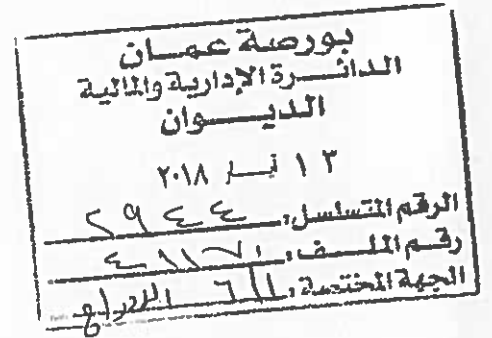 بورصة عمان
الدائرة الإدارية والمالية
الديوان
١٣ أيار ٢٠١٨
الرقم المتسلسل: ٢٩٤٤
رقم الملف: ٤١١٧١
الجهة المختصة: الإدراج